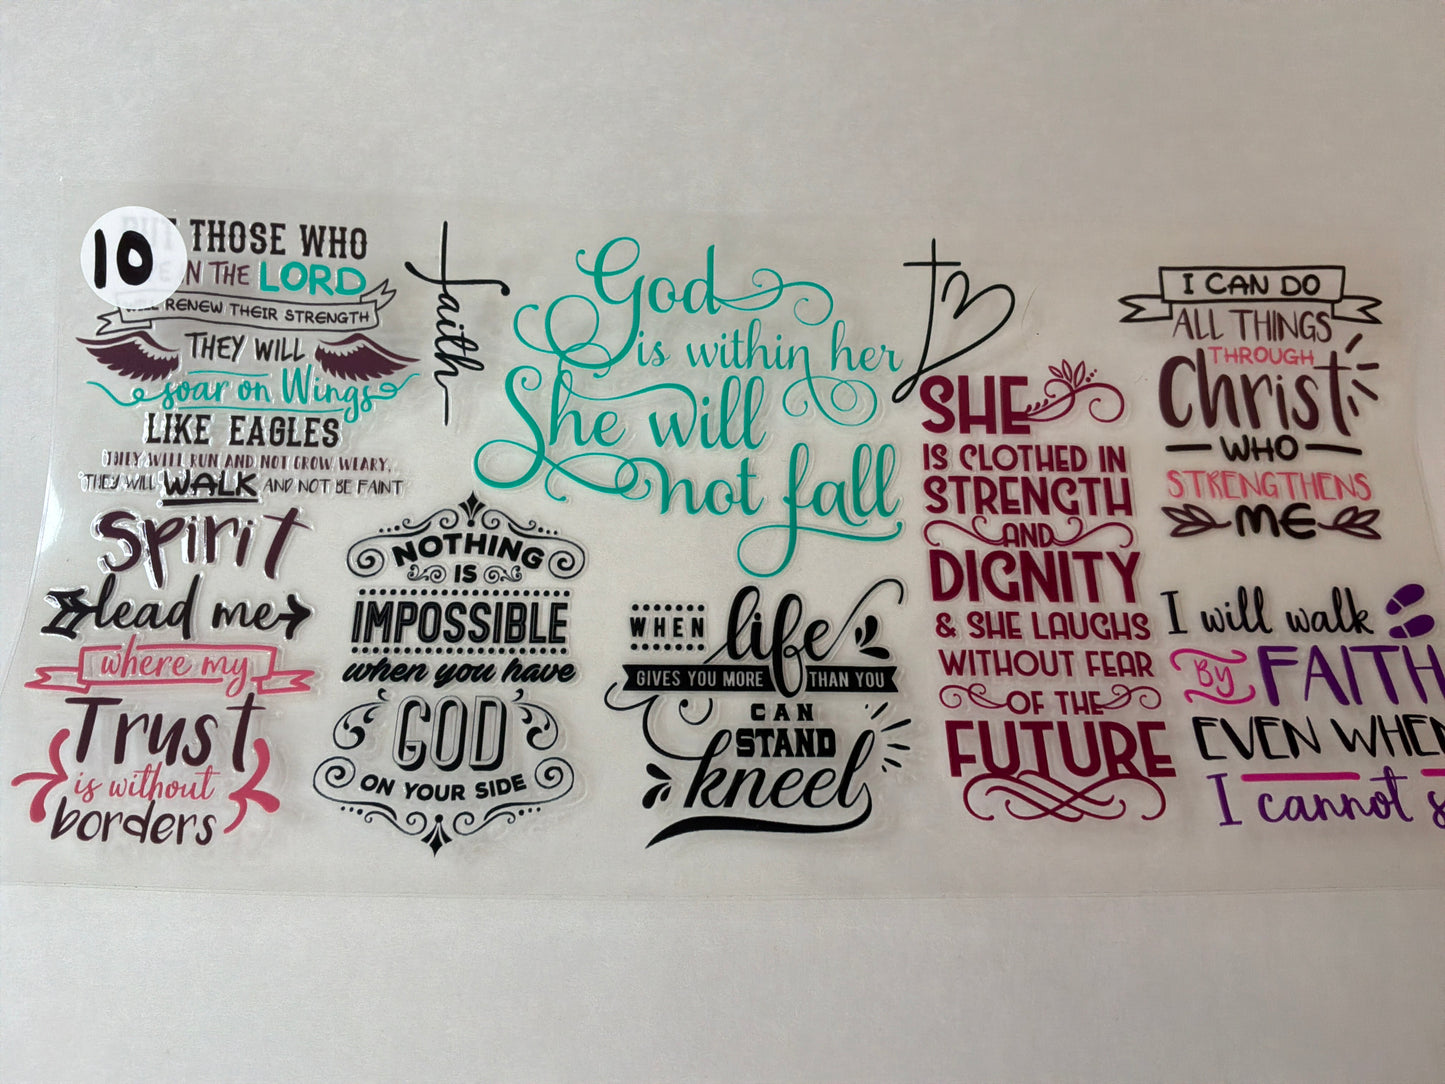 10
THOSE WHO
IN THE LORD
RENEW THEIR STRENGTH
THEY WILL
soar on Wings
LIKE EAGLES
THEY WILL RUN AND NOT GROW WEARY,
THEY WILL WALK AND NOT BE FAINT
faith
God
is within her
She will
not fall
SHE
IS CLOTHED IN
STRENGTH
AND
DIGNITY
& SHE LAUGHS
WITHOUT FEAR
OF THE
FUTURE
I CAN DO
ALL THINGS
THROUGH
Christ
WHO
STRENGTHENS
ME
Spirit
lead me
where my
Trust
is without
borders
NOTHING
IS
IMPOSSIBLE
when you have
GOD
ON YOUR SIDE
WHEN life
GIVES YOU MORE THAN YOU
CAN
STAND
kneel
I will walk
BY FAITH
EVEN WHEN
I cannot s